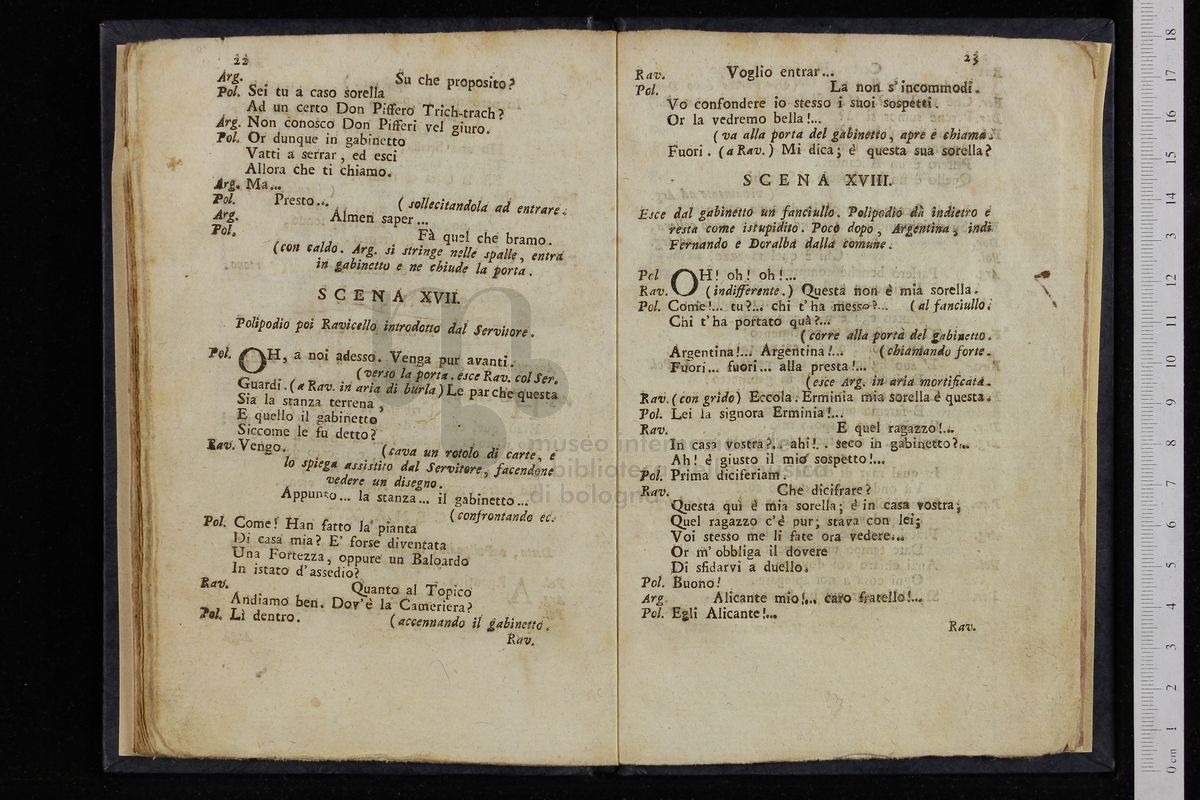 22
Arg. Su che proposito?
Pol. Sei tu a caso sorella
Ad un certo Don Piffero Trich-trach?
Arg. Non conosco Don Pifferi vel giuro.
Pol. Or dunque in gabinetto
Vatti a serrar, ed esci
Allora che ti chiamo.
Arg. Ma...
Pol. Presto... (sollecitandola ad entrare.
Arg. Almen saper...
Pol. Fà quel che bramo.
(con caldo. Arg. si stringe nelle spalle, entra
in gabinetto e ne chiude la porta.
SCENA XVII.
Polipodio poi Ravicello introdotto dal Servitore.
Pol. OH, a noi adesso. Venga pur avanti.
(verso la porta. esce Rav. col Ser.
Guardi. (a Rav. in aria di burla) Le par che questa
Sia la stanza terrena,
E quello il gabinetto
Siccome le fu detto?
Rav. Vengo. (cava un rotolo di carte, e
lo spiega assistito dal Servitore, facendone
vedere un disegno.
Appunto... la stanza... il gabinetto...
(confrontando ec.
Pol. Come! Han fatto la pianta
Di casa mia? E' forse diventata
Una Fortezza, oppure un Baloardo
In istato d'assedio?
Rav. Quanto al Topico
Andiamo ben. Dov'è la Cameriera?
Pol. Lì dentro. (accennando il gabinetto.
Rav.
23
Rav. Voglio entrar...
Pol. La non s'incommodi.
Vo confondere io stesso i suoi sospetti.
Or la vedremo bella!...
(va alla porta del gabinetto, apre e chiama.
Fuori. (a Rav.) Mi dica; è questa sua sorella?
SCENA XVIII.
Esce dal gabinetto un fanciullo. Polipodio dà indietro e
resta come istupidito. Poco dopo, Argentina, indi
Fernando e Doralba dalla comune.
Pol OH! oh! oh!...
Rav. (indifferente.) Questa non è mia sorella.
Pol. Come!... tu?... chi t'ha messo?... (al fanciullo.
Chi t'ha portato quà?...
(corre alla porta del gabinetto.
Argentina!... Argentina!... (chiamando forte.
Fuori... fuori... alla presta!...
(esce Arg. in aria mortificata.
Rav. (con grido) Eccola. Erminia mia sorella è questa.
Pol. Lei la signora Erminia!...
Rav. E quel ragazzo!...
In casa vostra?... ahi!.. seco in gabinetto?...
Ah! è giusto il mio sospetto!...
Pol. Prima diciferiam.
Rav. Che dicifrare?
Questa quì è mia sorella; è in casa vostra;
Quel ragazzo c'è pur; stava con lei;
Voi stesso me li fate ora vedere...
Or m'obbliga il dovere
Di sfidarvi a duello.
Pol. Buono!
Arg. Alicante mio!... caro fratello!...
Pol. Egli Alicante!...
Rav.
museo internazionale
biblioteca della musica
di bologna
0 cm 1 2 3 4 5 6 7 8 9 10 11 12 13 14 15 16 17 18